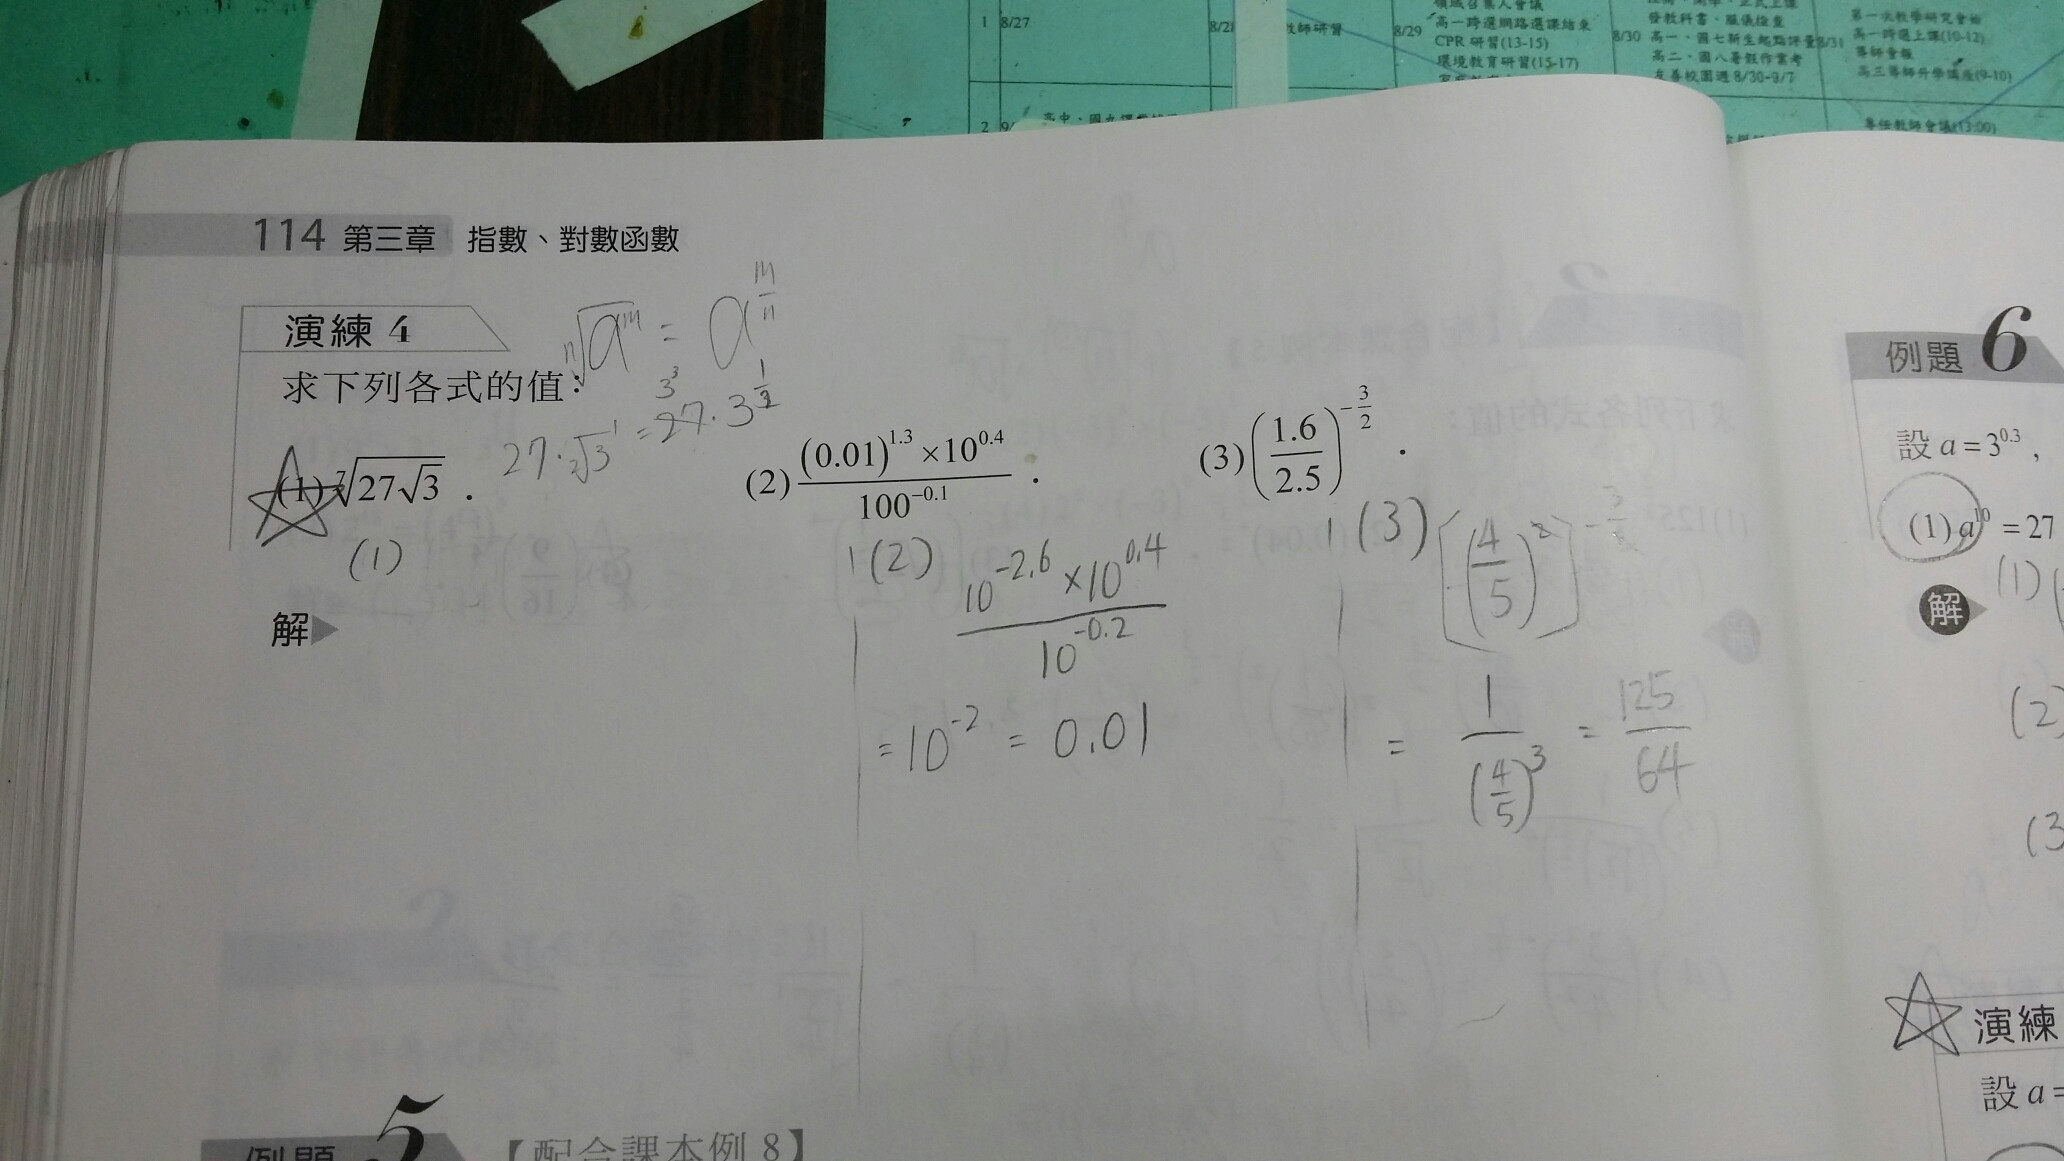 1 8/27
8/28
教師研習
8/29
高一跨選網路選課結束
CPR 研習(13-15)
環境教育研習(15-17)
8/30
發教科書、服儀檢查
高一、國七新生起點評量
高二、國八暑假作業考
友善校園週 8/30-9/7
8/31
高一跨選上課(10-12)
導師會報
高三導師升學講座(9-10)
2 9/
專任教師會議(13:00)
114 第三章 指數、對數函數
演練 4
ⁿ√aᵐ = a^(m/n)
求下列各式的值：
3³
27·²√3¹ = 27·3^(1/2)
(1) ⁷√(27√3) .
(2) ((0.01)^1.3 × 10^0.4) / 100^-0.1 .
(3) (1.6/2.5)^(-3/2) .
(1)
(2) (10^-2.6 × 10^0.4) / 10^-0.2
= 10^-2 = 0.01
(3) [(4/5)^2]^(-3/2)
= 1/(4/5)^3 = 125/64
解
例題 5 【配合課本例 8】
例題 6
設 a = 3^0.3 ,
(1) a^10 = 27
(1)
解
(2)
(3
演練
設 a =